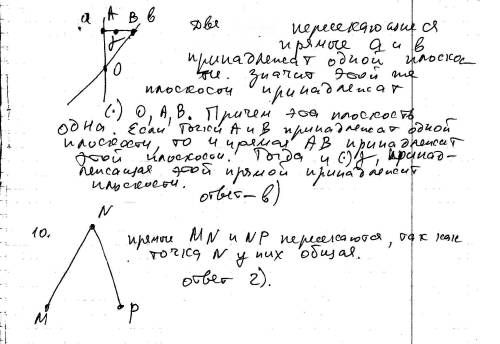 a A B b
Две пересекающиеся
прямые a и b
J
принадлежат одной плоскос-
O
ти. значит этой же
плоскости принадлежат
(·) O, A, B. Причем эта плоскость
одна. Если точки A и B принадлежат одной
плоскости, то и прямая AB принадлежит
этой плоскости. Тогда и (·) J, принад-
лежащая этой прямой принадлежит
плоскости.
ответ – в)
10.
N
прямые MN и NP пересекаются, так как
точка N у них общая.
ответ 2).
M P